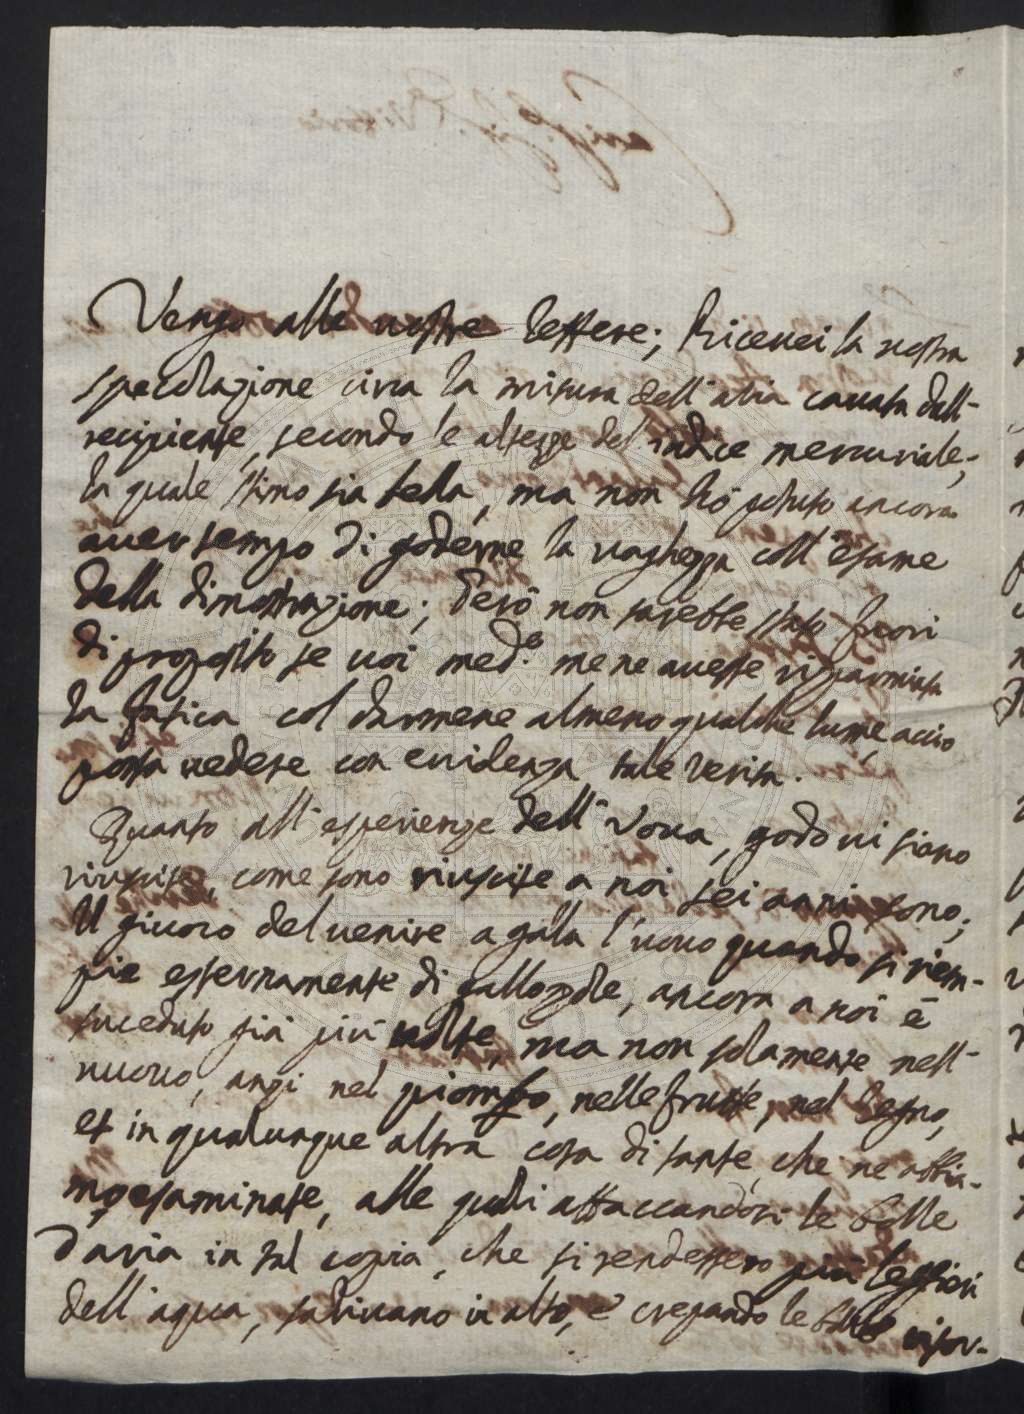 Vengo alle vostre lettere; Ricevei la vostra
specolazione circa la misura dell'aria cavata dall-
recipiente, secondo le altezze del indice mercuriale,
la quale stimo sia bella, ma non hò potuto ancora
aver tempo di goderne la vaghezza coll'esame
della dimostrazione; Però non sarebbe stato fuori
di proposito se voi med.º me ne aveste risparmiata
la fatica col darmene almeno qualche lume, acciò
possa vedere con evidenza tale verità.
Quanto all'esperienze dell'uova, godo vi siano
riuscite, come sono riuscite a noi sei anni sono;
Il giuoco del venire a galla l'uovo quando si riem-
pie esternamente di gallozzole, ancora a noi è
suceduto già più volte, ma non solamente nell-
uovo, anzi nel piombo, nelle frutte, nel legno,
et in qualunque altra cosa di tante, che ne abbia-
mo esaminate, alle quali attaccandosi le bolle
d'aria in tal copia, che si rendessero più leggieri
dell'aqua, salivano in alto, e crepando le bolle ritor-